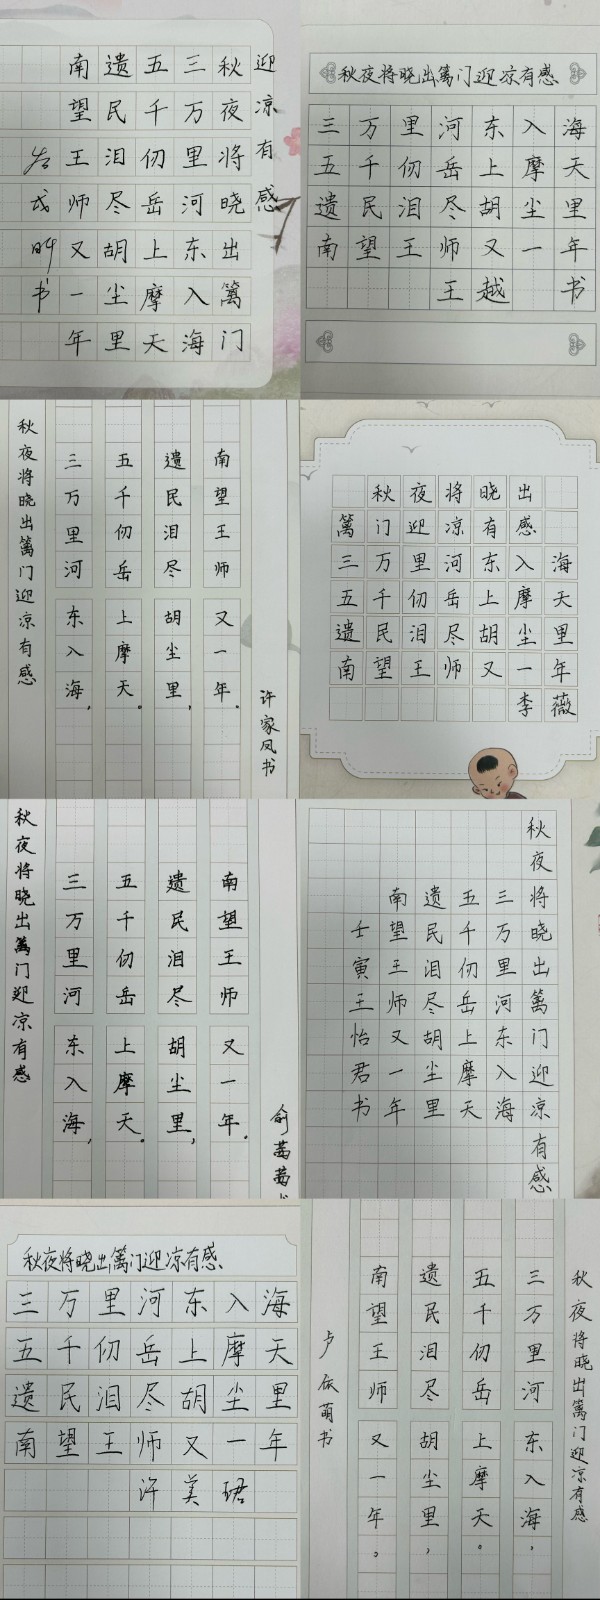 秋夜将晓出篱门
迎凉有感
三万里河东入海
五千仞岳上摩天
遗民泪尽胡尘里
南望王师又一年
书
秋夜将晓出篱门迎凉有感
三万里河东入海
五千仞岳上摩天
遗民泪尽胡尘里
南望王师又一年
王越 书
秋夜将晓出篱门迎凉有感
三万里河东入海，
五千仞岳上摩天。
遗民泪尽胡尘里，
南望王师又一年。
许家凤书
秋夜将晓出
篱门迎凉有感
三万里河东入海
五千仞岳上摩天
遗民泪尽胡尘里
南望王师又一年
李薇
秋夜将晓出篱门迎凉有感
三万里河东入海，
五千仞岳上摩天。
遗民泪尽胡尘里，
南望王师又一年。
秋夜将晓出篱门迎凉有感
三万里河东入海
五千仞岳上摩天
遗民泪尽胡尘里
南望王师又一年
壬寅王怡君书
秋夜将晓出篱门迎凉有感
三万里河东入海
五千仞岳上摩天
遗民泪尽胡尘里
南望王师又一年
许美珺
秋夜将晓出篱门迎凉有感
三万里河东入海，
五千仞岳上摩天。
遗民泪尽胡尘里，
南望王师又一年。
卢依萌书